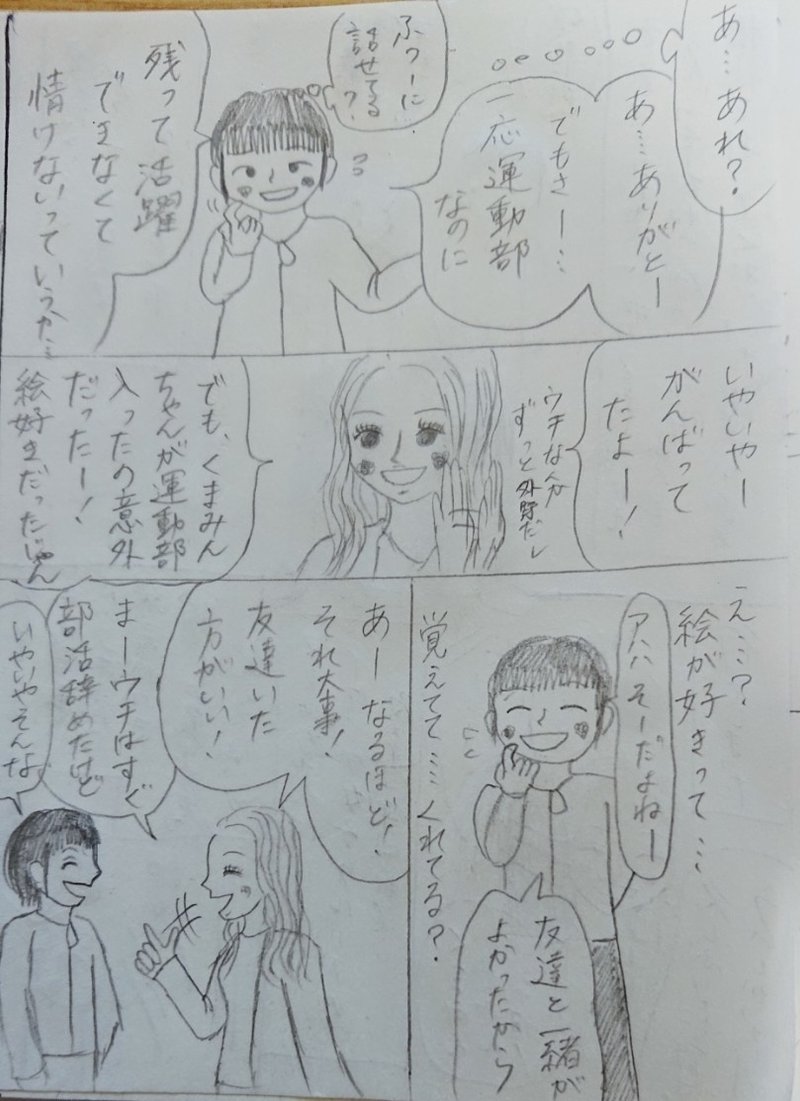 あ…あれ?
あ…ありがとー
でもさー…
一応運動部
なのに
ふつーに
話せてる
?
残って活躍
できなくて
情けないっていうか…
いやいやー
がんばって
たよー!
ウチなんか
ずっと外野だし
でも、くまみん
ちゃんが運動部
入ったの意外
だったー!
絵好きだったじゃん
え…?
絵が好きって…
アハハ そーだよねー
友達と一緒が
よかったから
覚えてて…くれてる?
あーなるほど!
それ大事!
友達いた
方がいい!
まーウチはすぐ
部活辞めたけど
いやいやそんな